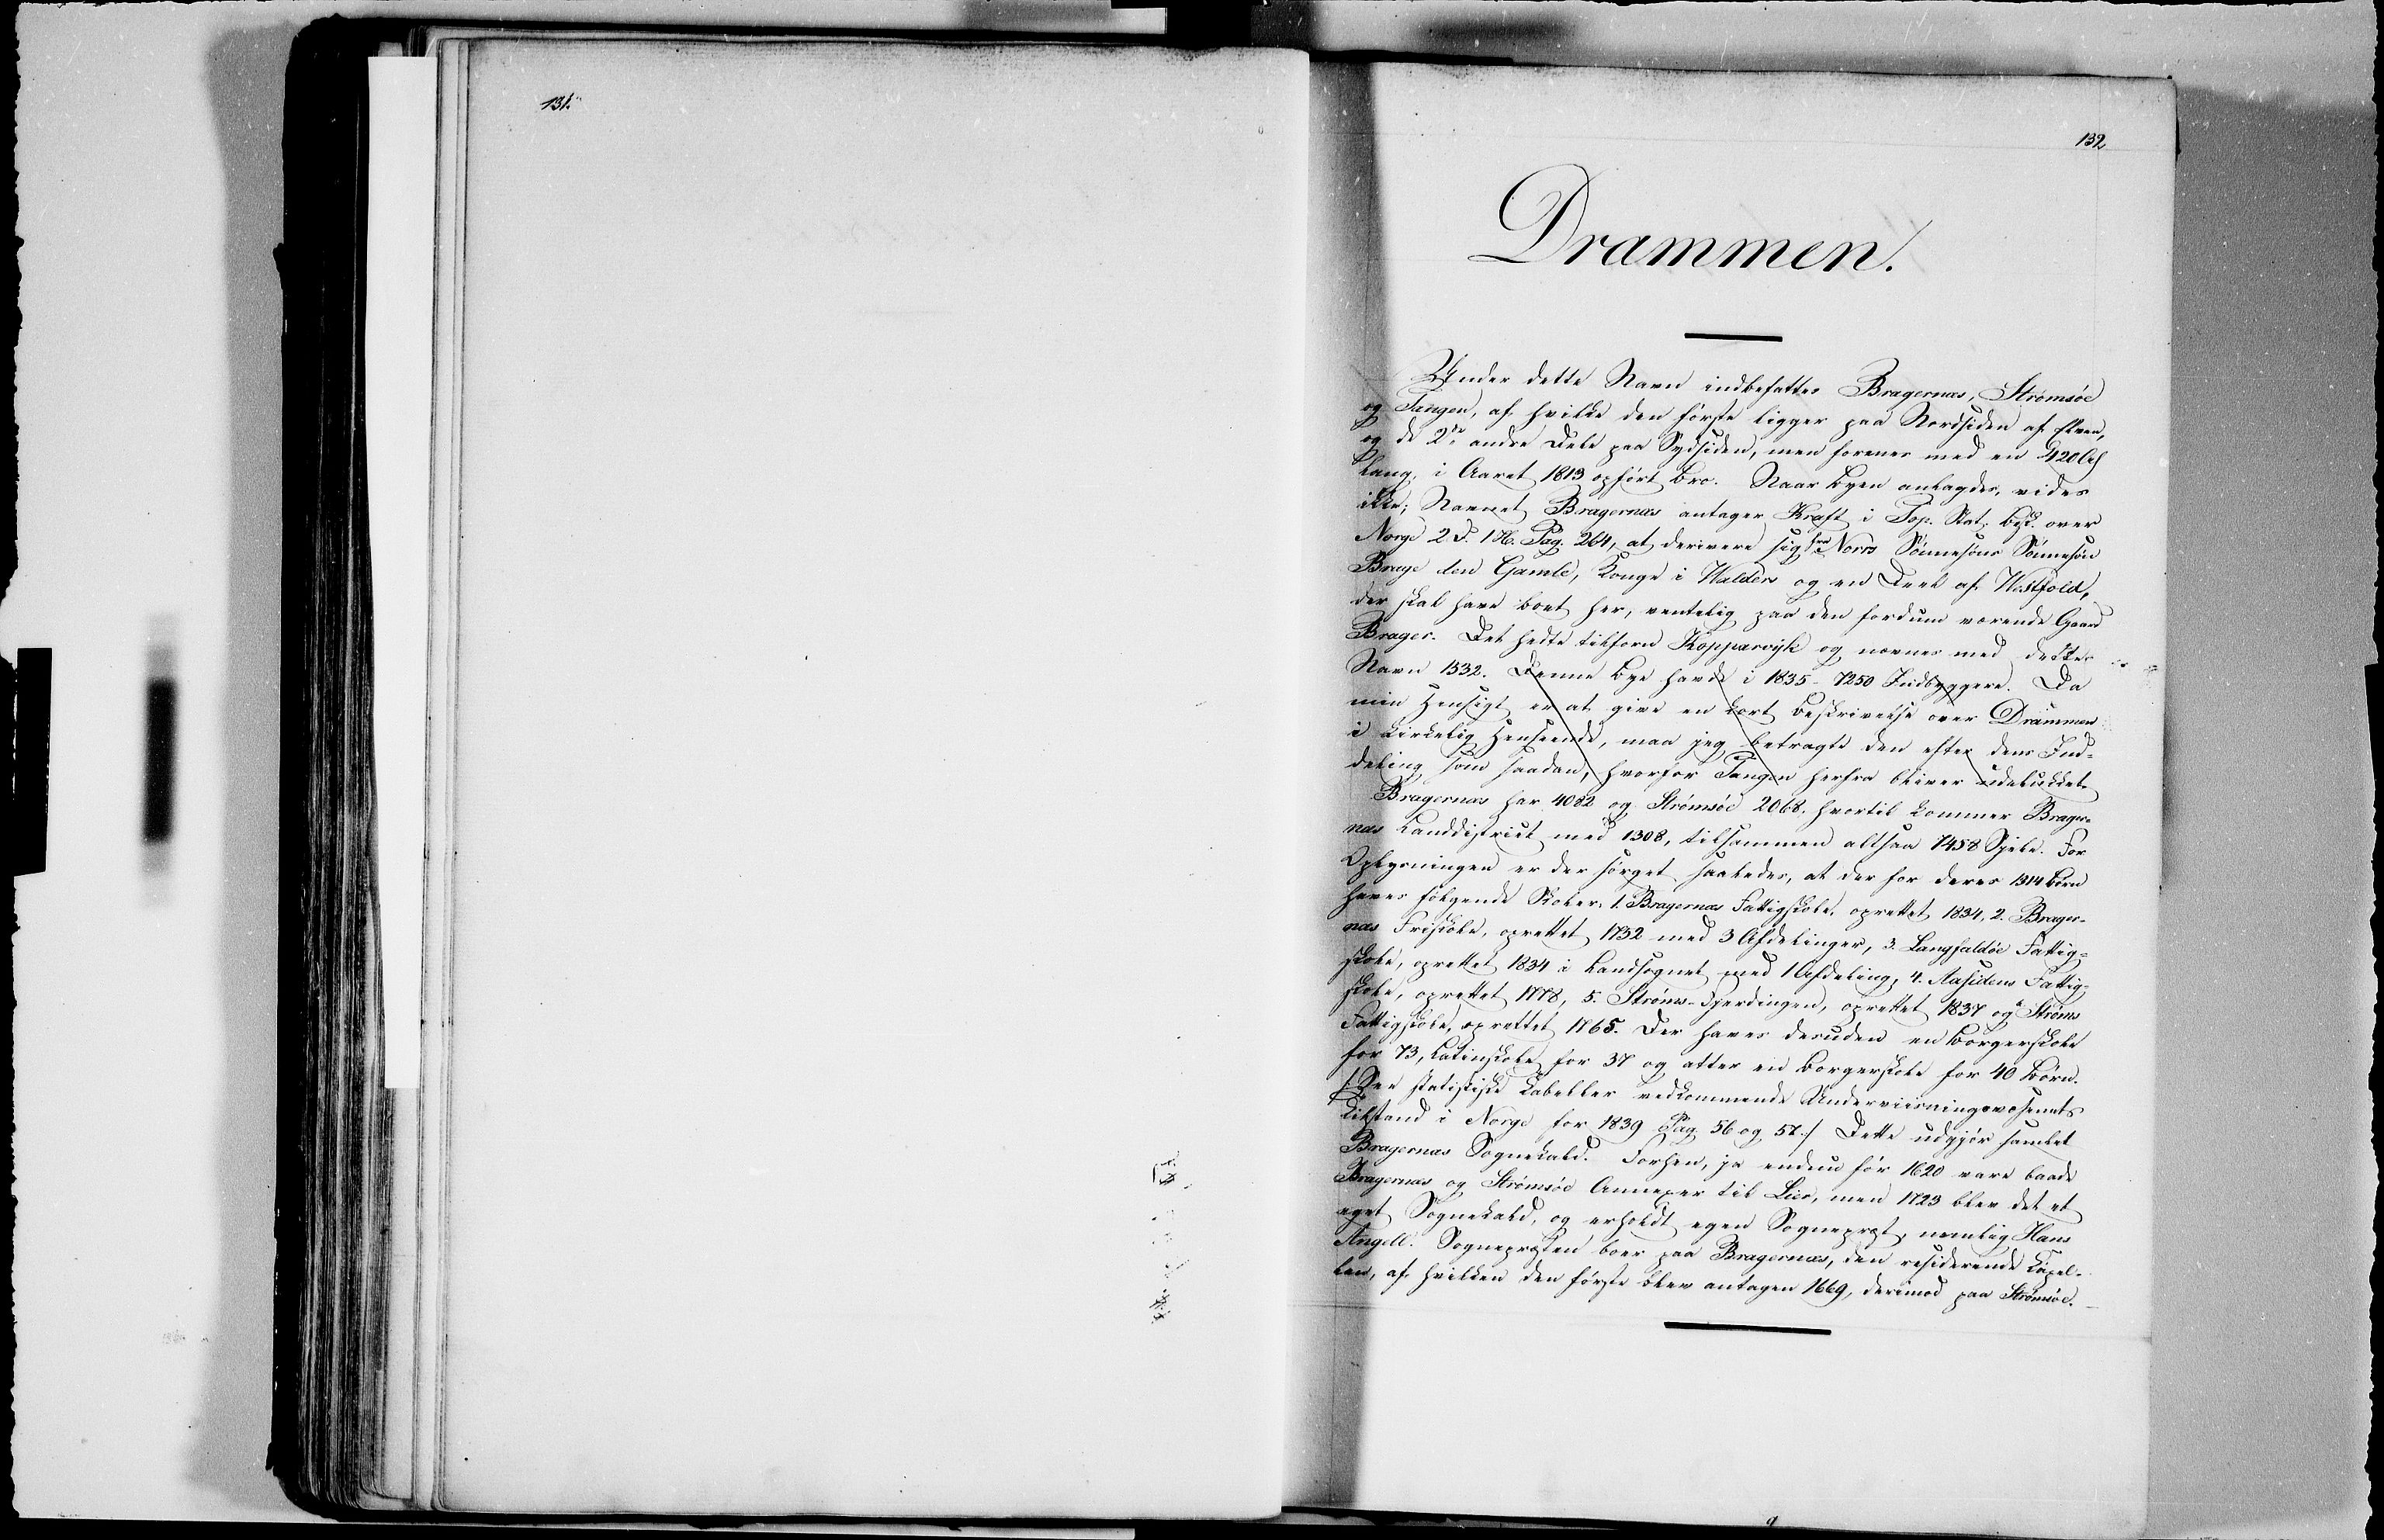 131.
132
Drammen.
Under dette Navn indbefattes Bragernæs, Strømsøe
og Tangen, af hvilke den første ligger paa Nordsiden af Elven,
og de 2de andre Dele paa Sydsiden, men forenes med en 420 Al.
lang, i Aaret 1813 opført Bro. Naar Byen anlagdes, vides
ikke; Navnet Bragernæs antager Kraft i Top. Stat. Besk. over
Norge 2 D. 1 H. Pag. 264, at derivere sig fra Norrs Sønnesøns Sønnesøn
Brage den Gamle, Konge i Walders og en Deel af Westfold,
der skal have boet her, ventelig paa den fordum værende Gaard
Brager. Det hedte tilforn Kopparvijk og nævnes med dette
Navn 1532. Denne Bye havde i 1835 - 7250 Indbyggere. Da
min Hensigt er at give en kort Beskrivelse over Drammen
i kirkelig Henseende, maa jeg betragte den efter dens Ind-
deling som saadan, hvorfor Tangen herfra bliver udelukket.
Bragernæs har 4082 og Strømsøe 2068. hvortil kommer Brager-
næs Landdistrict med 1308, tilsammen altsaa 7458 Sjele. For
Oplysningen er der sørget saaledes, at der for deres 1314 Børn
haves følgende Skoler: 1. Bragernæs Fattigskole, oprettet 1834, 2. Brager-
næs Friskole, oprettet 1732 med 3 Afdelinger, 3. Langfaldøe Fattig-
skole, oprettet 1834 i Landsognet med 1 Afdeling, 4. Aasidens Fattig-
skole, oprettet 1778, 5. Strøms-Gjerdingen, oprettet 1837 og Strøms
Fattigskole, oprettet 1765. Der haves desuden en Borgerskole
for 73, Latinskole for 37 og atter en Borgerskole for 40 Børn.
/: See statistiske Tabeller vedkommende Underviisningsvæsenets
Tilstand i Norge for 1839 Pag. 56 og 57 :/ Dette udgjør samlet
Bragernæs Sognekald. Forhen, ja endnu før 1620 vare baade
Bragernæs og Strømsøe Annexer til Lier, men 1723 blev det et
eget Sognekald, og erholdt egen Sognepræst, nemlig Hans
Angell. Sognepræsten boer paa Bragernæs, den residerende Capel-
lan, af hvilken den første blev antagen 1669, derimod paa Strømsøe.